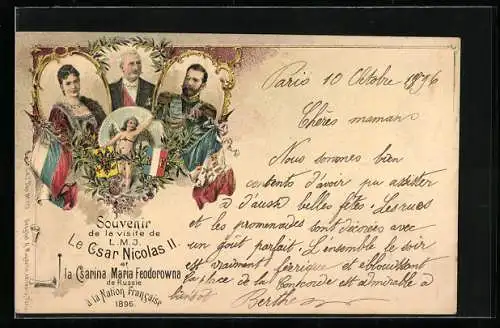 Souvenir
de la visite de
L.M.J.
Le Csar Nicolas II.
et
la Csarina Maria Feodorowna
de Russie
à la Nation Française
1896.
Paris 10 Octobre 1896
Chères maman
Nous sommes bien
contents d'avoir pu assister
à d'aussi belles fêtes. Les rues
et les promenades sont décorées avec
un goût parfait. L'ensemble le soir
est vraiment féerique et éblouissant
la place de la Concorde est admirable à
bientôt Berthe